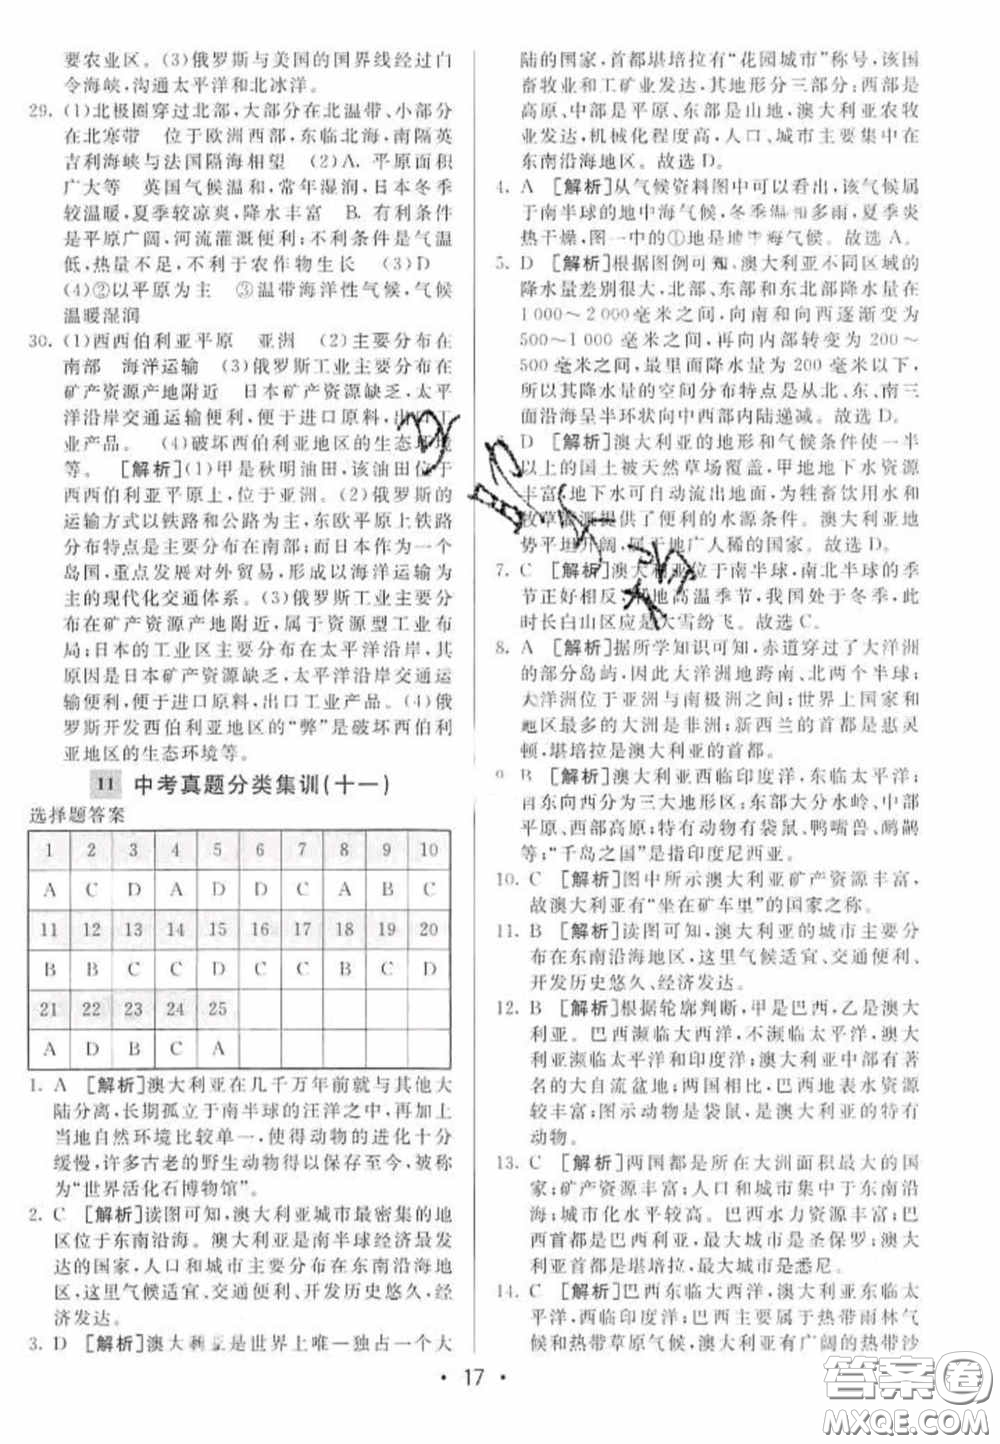 要农业区。(3)俄罗斯与美国的国界线经过白
令海峡,沟通太平洋和北冰洋。
29. (1)北极圈穿过北部,大部分在北温带、小部分
在北寒带 位于欧洲西部,东临北海,南隔英
吉利海峡与法国隔海相望 (2)A. 平原面积
广大等 英国气候温和,常年湿润,日本冬季
较温暖,夏季较凉爽,降水丰富 B. 有利条件
是平原广阔,河流灌溉便利;不利条件是气温
低,热量不足,不利于农作物生长 (3)D
(4)②以平原为主 ③温带海洋性气候,气候
温暖湿润
30. (1)西西伯利亚平原 亚洲 (2)主要分布在
南部 海洋运输 (3)俄罗斯工业主要分布在
矿产资源产地附近 日本矿产资源缺乏,太平
洋沿岸交通运输便利,便于进口原料,出口工
业产品。 (4)破坏西伯利亚地区的生态环境
等。 [解析](1)甲是秋明油田,该油田位于
西西伯利亚平原上,位于亚洲。(2)俄罗斯的
运输方式以铁路和公路为主,东欧平原上铁路
分布特点是主要分布在南部;而日本作为一个
岛国,重点发展对外贸易,形成以海洋运输为主
的现代化交通体系。(3)俄罗斯工业主要分
布在矿产资源产地附近,属于资源型工业布
局;日本的工业区主要分布在太平洋沿岸,其
原因是日本矿产资源缺乏,太平洋沿岸交通运
输便利,便于进口原料,出口工业产品。(4)俄
罗斯开发西伯利亚地区的“弊”是破坏西伯利
亚地区的生态环境等。
11 中考真题分类集训(十一)
选择题答案
1 2 3 4 5 6 7 8 9 10
A C D A D D C A B C
11 12 13 14 15 16 17 18 19 20
B B C C D C B B C D
21 22 23 24 25
A D B C A
1. A [解析]澳大利亚在几千万年前就与其他大
陆分离,长期孤立于南半球的汪洋之中,再加上
当地自然环境比较单一,使得动物的进化十分
缓慢,许多古老的野生动物得以保存至今,被称
为“世界活化石博物馆”。
2. C [解析]读图可知,澳大利亚城市最密集的地
区位于东南沿海。澳大利亚是南半球经济最发
达的国家,人口和城市主要分布在东南沿海地
区,这里气候适宜、交通便利、开发历史悠久,经
济发达。
3. D [解析]澳大利亚是世界上唯一独占一个大
陆的国家,首都堪培拉有“花园城市”称号,该国
畜牧业和工矿业发达,其地形分三部分;西部是
高原、中部是平原、东部是山地,澳大利亚农牧
业发达,机械化程度高,人口、城市主要集中在
东南沿海地区。故选D。
4. A [解析]从气候资料图中可以看出,该气候属
于南半球的地中海气候,冬季温和多雨,夏季炎
热干燥,图一中的①地是地中海气候。故选A。
5. D [解析]根据图例可知,澳大利亚不同区域的
降水量差别很大,北部、东部和东北部降水量在
1 000～2 000毫米之间,向南和向西逐渐变为
500～1 000毫米之间,再向内陆变为200～
500毫米之间,最里面降水量为200毫米以下,
所以其降水量的空间分布特点是从北、东、南三
面沿海呈半环状向中西部内陆递减。故选D。
D [解析]澳大利亚的地形和气候条件使一半
以上的国土被天然草场覆盖,甲地地下水资源
丰富,地下水可自动流出地面,为牲畜饮用水和
牧草灌溉提供了便利的水源条件。澳大利亚地
势平坦开阔,属于地广人稀的国家。故选D。
7. C [解析]澳大利亚位于南半球,与北半球的季
节正好相反;当地高温季节,我国处于冬季,此
时长白山区应是大雪纷飞。故选C。
8. A [解析]据所学知识可知,赤道穿过了大洋洲
的部分岛屿,因此大洋洲地跨南、北两个半球;
大洋洲位于亚洲与南极洲之间;世界上国家和
地区最多的大洲是非洲;新西兰的首都是惠灵
顿,堪培拉是澳大利亚的首都。
9. B [解析]澳大利亚西临印度洋,东临太平洋;
自东向西分为三大地形区:东部大分水岭、中部
平原、西部高原;特有动物有袋鼠、鸭嘴兽、鸸鹋
等;“千岛之国”是指印度尼西亚。
10. C [解析]图中所示澳大利亚矿产资源丰富,
故澳大利亚有“坐在矿车里”的国家之称。
11. B [解析]读图可知,澳大利亚的城市主要分
布在东南沿海地区,这里气候适宜、交通便利、
开发历史悠久、经济发达。
12. B [解析]根据轮廓判断,甲是巴西,乙是澳大
利亚。巴西濒临大西洋,不濒临太平洋,澳大
利亚濒临太平洋和印度洋;澳大利亚中部有著
名的大自流盆地;两国相比,巴西地表水资源
较丰富;图示动物是袋鼠,是澳大利亚的特有
动物。
13. C [解析]两国都是所在大洲面积最大的国
家;矿产资源丰富;人口和城市集中在东南沿
海,城市化水平较高。巴西水力资源丰富;巴
西首都是巴西利亚,最大城市是圣保罗;澳大
利亚首都是堪培拉,最大城市是悉尼。
14. C [解析]巴西东临大西洋,澳大利亚东临太
平洋,西临印度洋;巴西主要属于热带雨林气
候和热带草原气候,澳大利亚有广阔的热带沙
• 17 •
答案圈
MXQE.COM